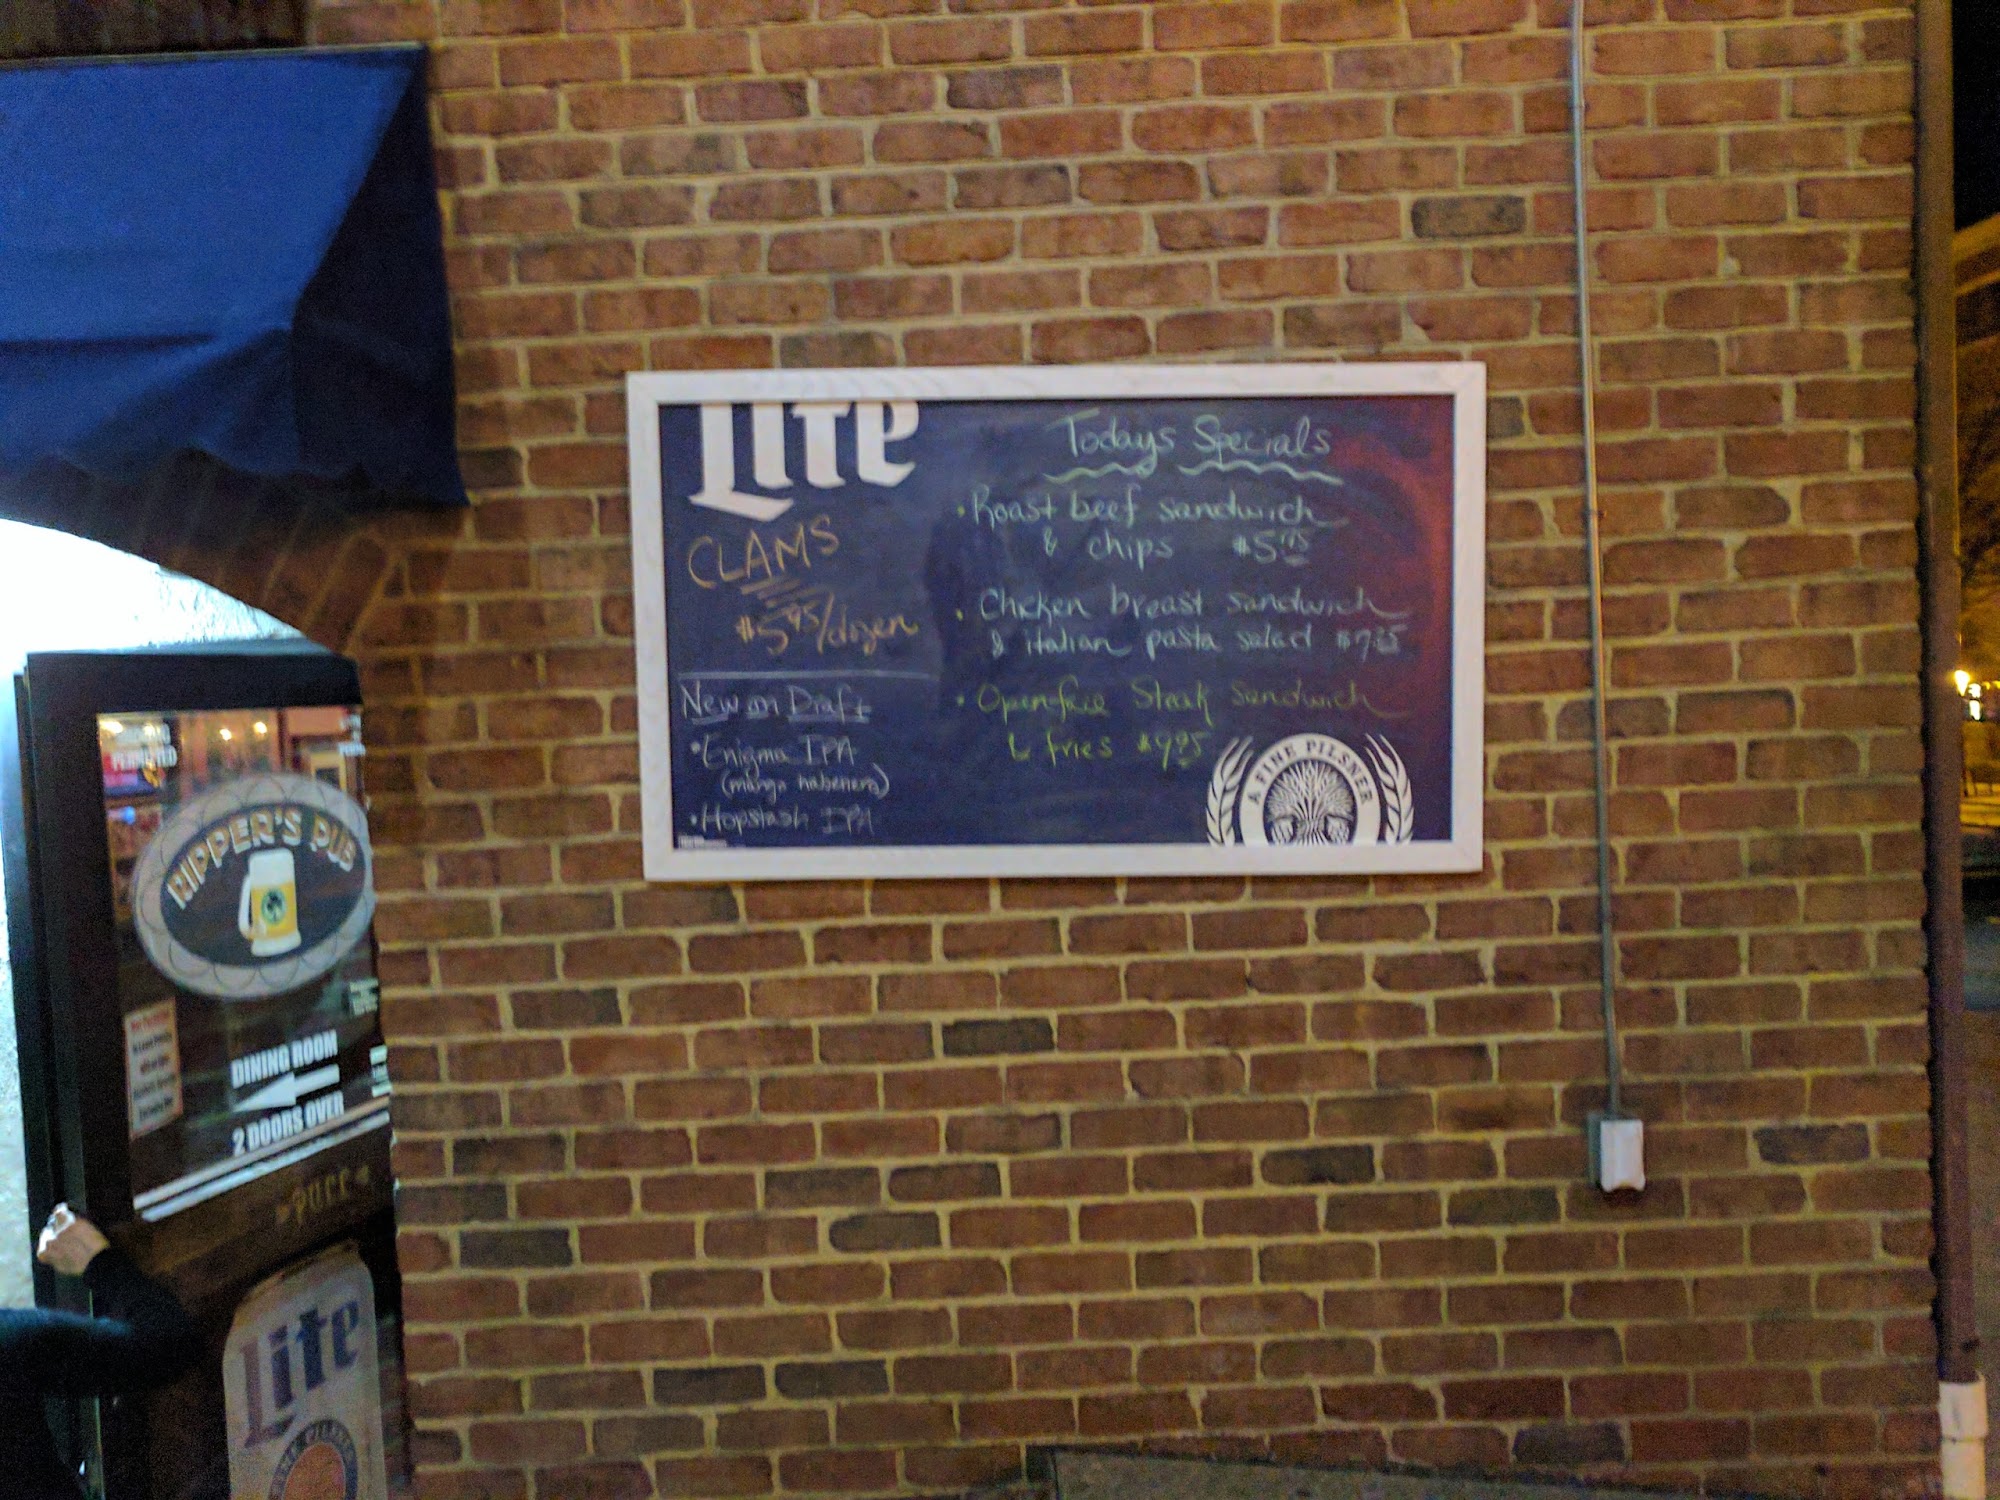 Lite
CLAMS
$5.95/dozen
New on Draft
• Enigma IPA
(mango habenero)
• Hopstash IPA
Todays Specials
• Roast beef sandwich
& chips $5.95
• Chicken breast sandwich
& italian pasta salad $7.25
• Openface Steak sandwich
& fries $9.95
A FINE PILSNER
PERMITTED
RIPPER'S PUB
DINING ROOM
2 DOORS OVER
Lite